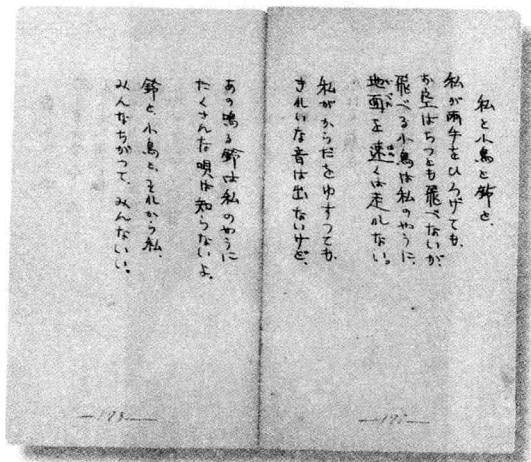 私と小鳥と鈴と、
私が両手をひろげても、
お空はちつとも飛べないが、
飛べる小鳥は私のやうに、
地面を速くは走れない。
私がからだをゆすつても、
きれいな音は出ないけど、
あの鳴る鈴は私のやうに
たくさんな唄は知らないよ。
鈴と、小鳥と、それから私、
みんなちがつて、みんないい。